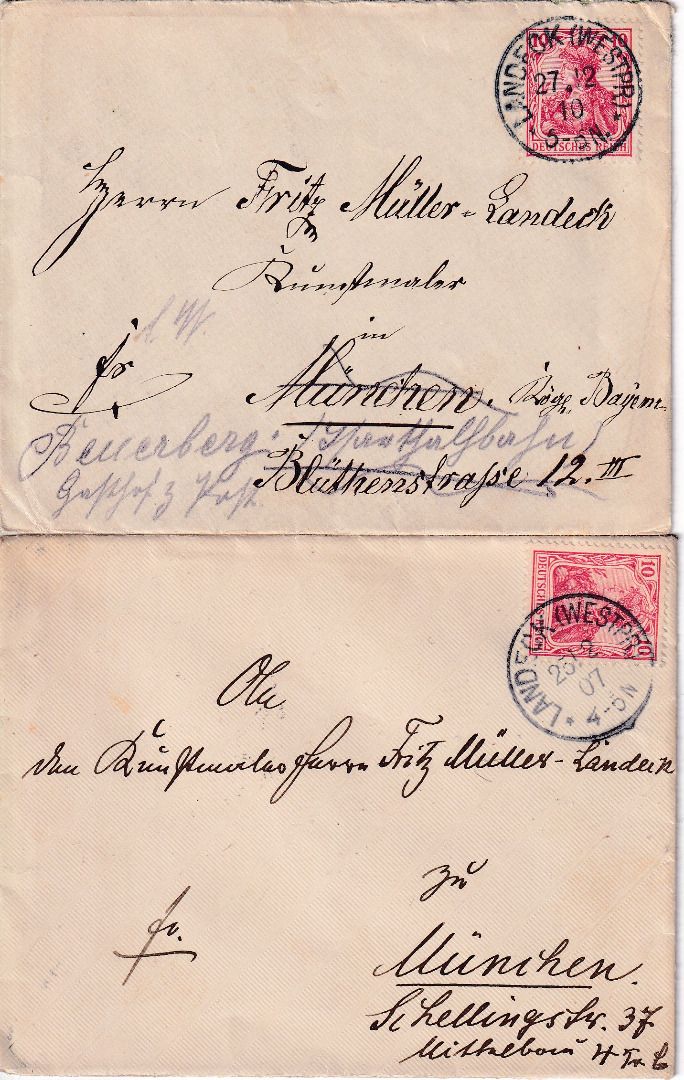 LANDECK (WESTPR)
27.12
10
5-6N.
10 10
DEUTSCHES REICH
Herrn Fritz Müller-Landeck
Kunstmaler
in
fr
München. Kögr. Bayern
Beuerberg. (Isarthalbahn)
Blüthenstrasse 12. III
Gasthof z Post
10
DEUTSCHES
LANDECK (WESTPR)
07
4-5N
An
den Kunstmaler Herrn Fritz Müller-Landeck
zu
fr.
München.
Schellingstr. 37
Mittelbau 4 Tr.